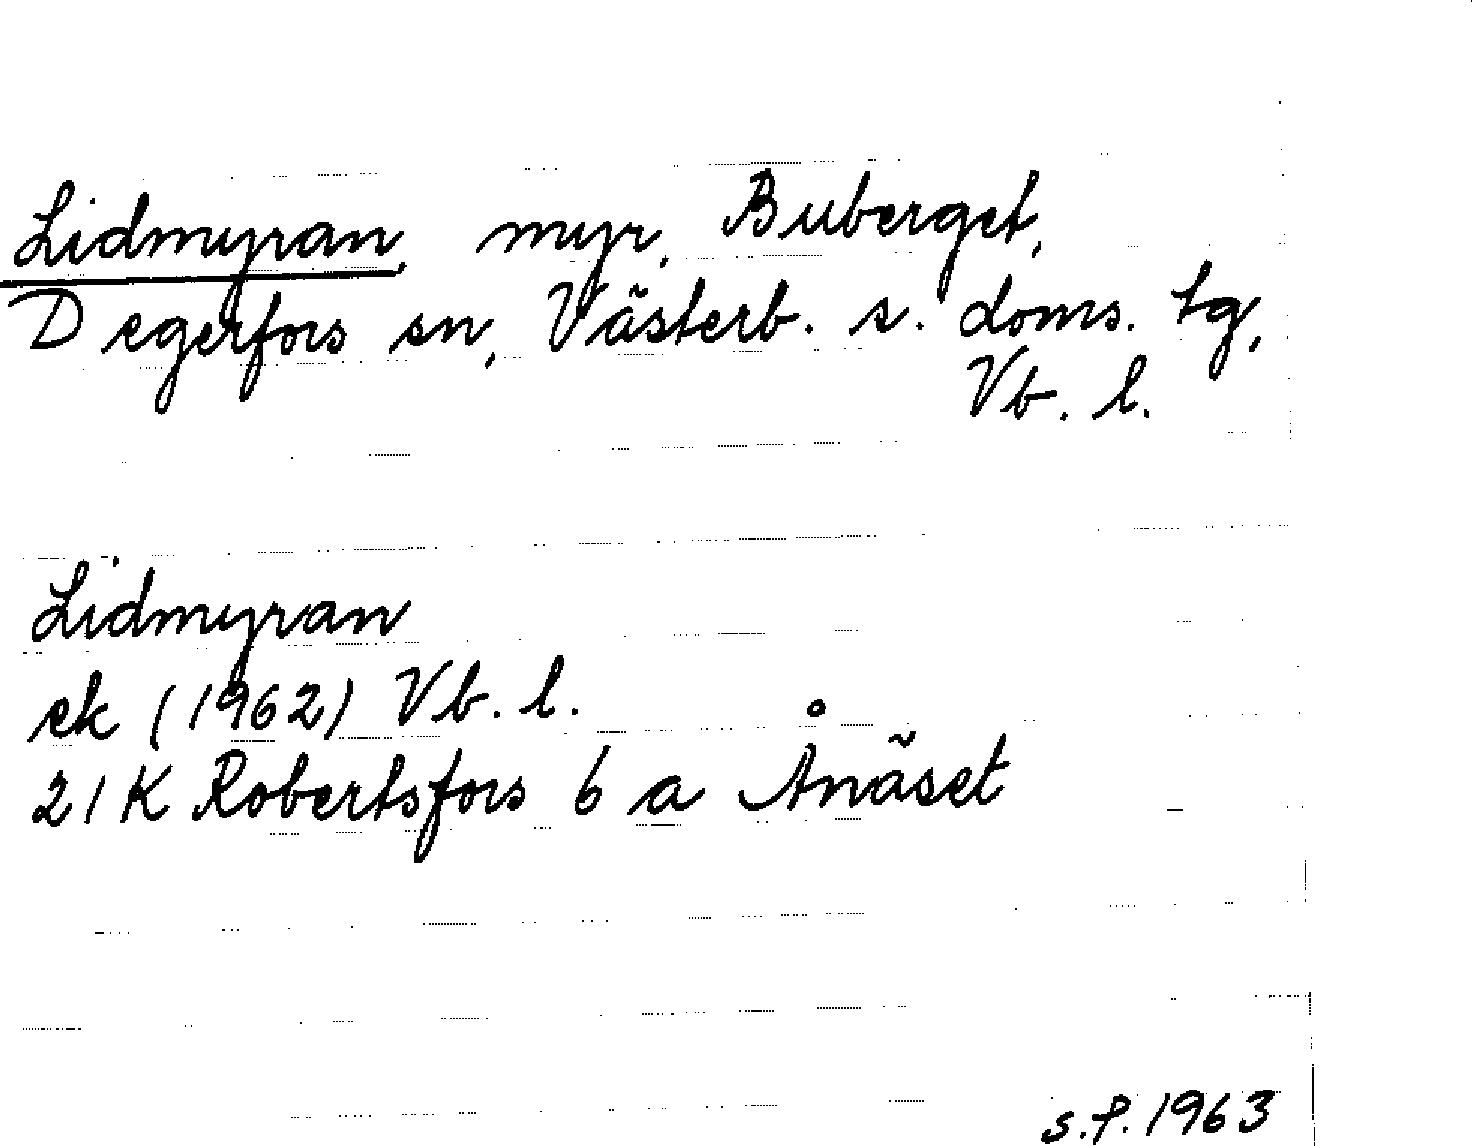 Lidmyran, myr, Buberget,
Degerfors sn, Västerb. s. doms. tg,
Vb. l.
Lidmyran
ek (1962) Vb. l.
21 K Robertsfors 6 a Ånäset
s.f. 1963